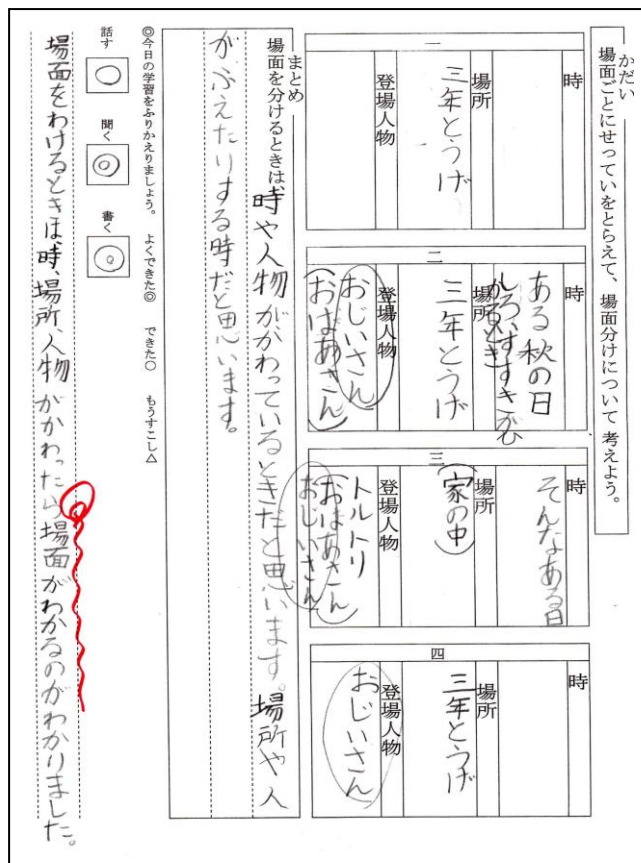 かだい
場面ごとにせっていをとらえて、場面分けについて考えよう。
一
時
場所
三年とうげ
登場人物
二
時
ある秋の日
しろいすすきがひ
かるとき)
場所
三年とうげ
登場人物
おじいさん
(おばあさん)
三
時
そんなある日
場所
(家の中)
登場人物
トルトリ
(おばあさん)
おじいさん
四
時
場所
三年とうげ
登場人物
おじいさん
まとめ
場面を分けるときは、時や人物がかわっているときだと思います。場所や人
がふえたりする時だと思います。
◎今日の学習をふりかえりましょう。 よくできた◎ できた○ もうすこし△
話す ○
聞く ◎
書く ◎
場面をわけるときは、時、場所、人物がかわったら場面がわかるのがわかりました。